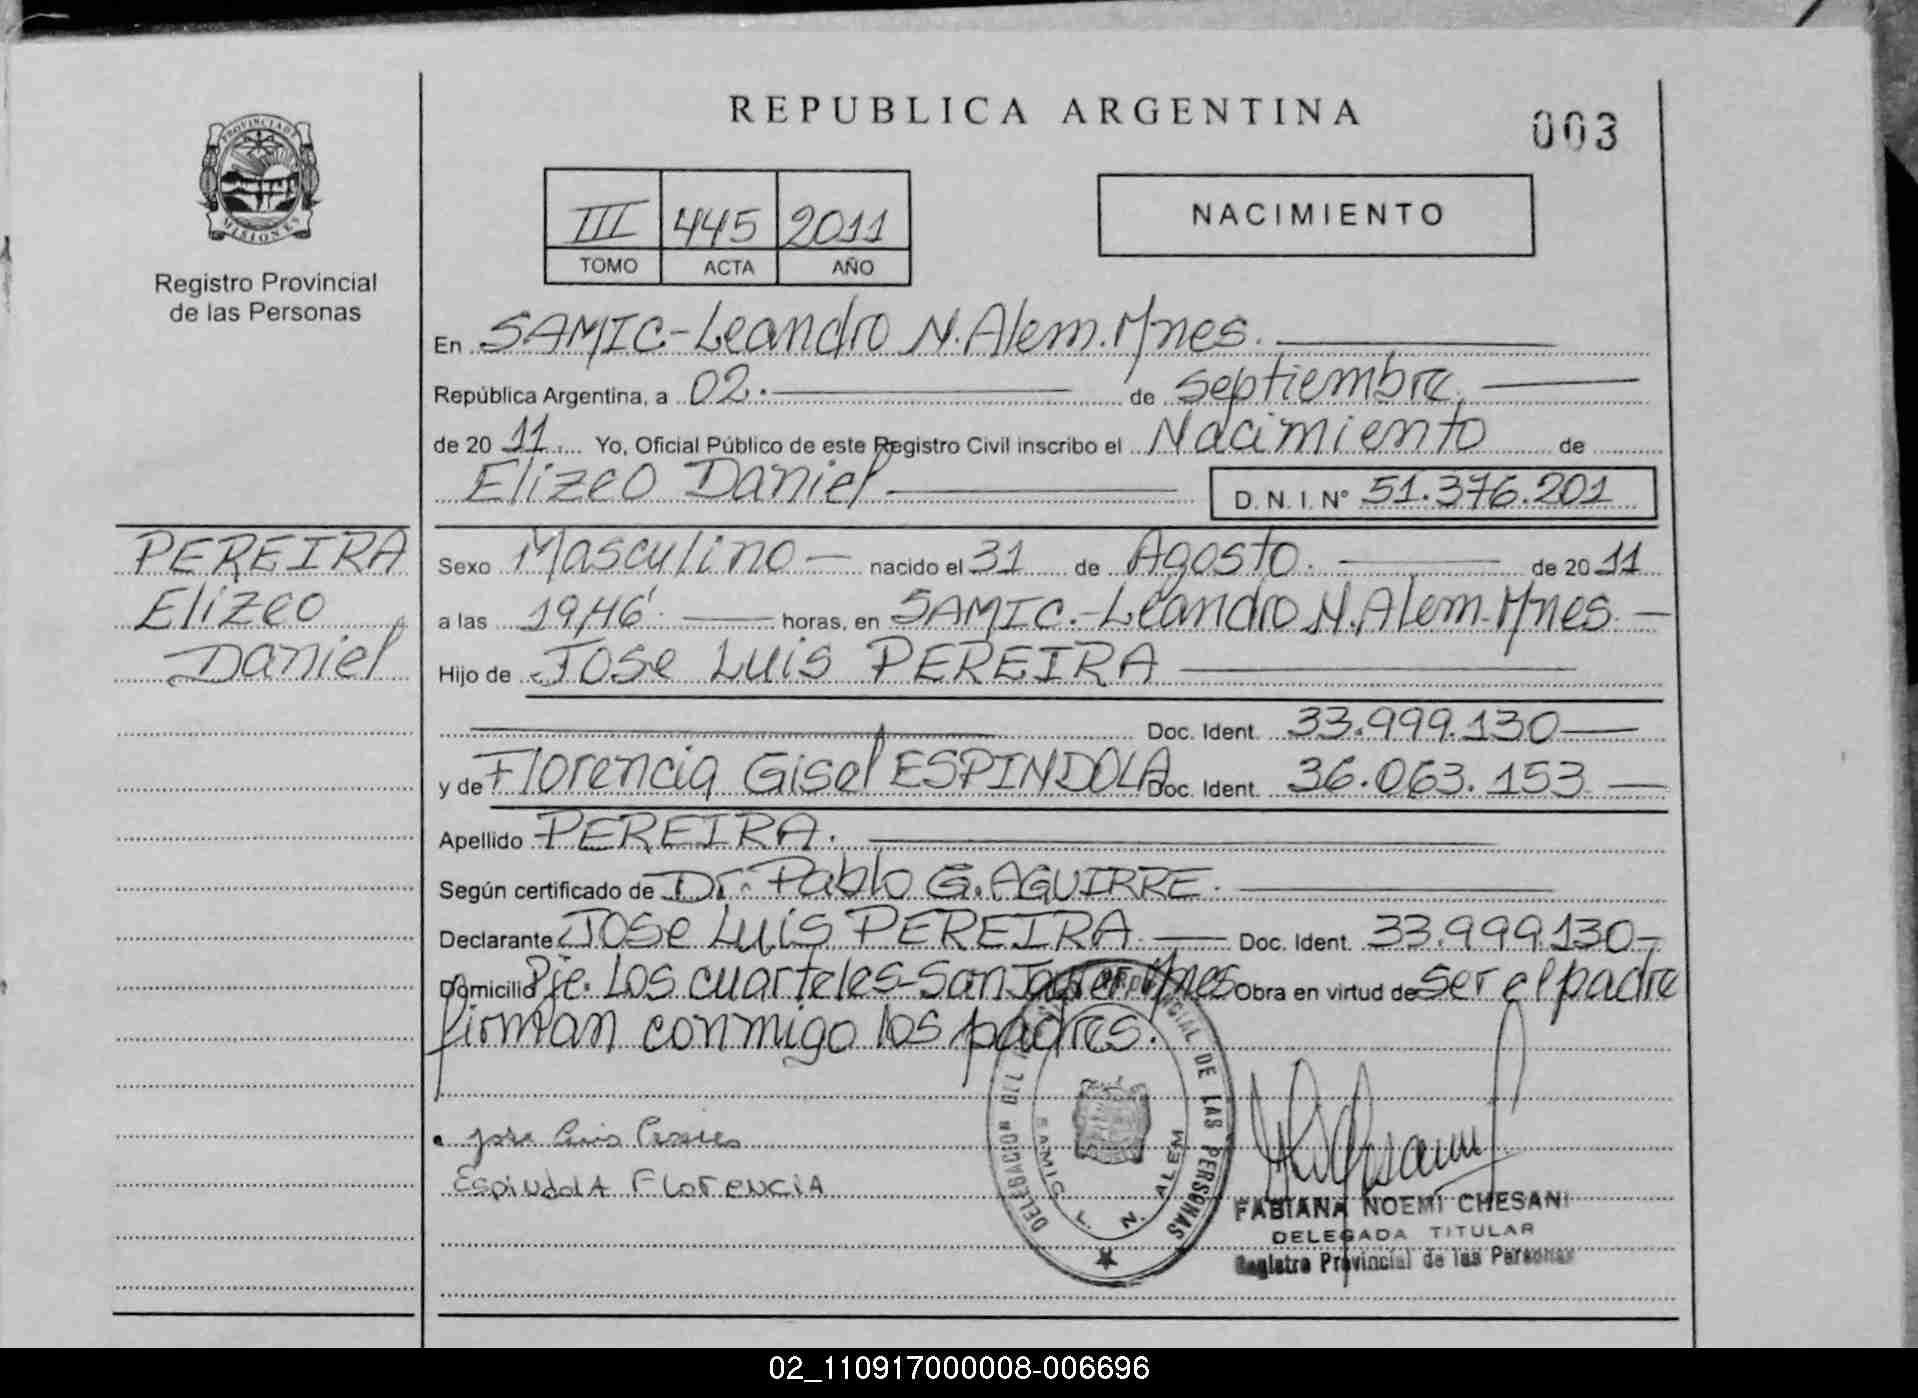 REPUBLICA ARGENTINA
003
PROVINCIA DE MISIONES
Registro Provincial
de las Personas
III 445 2011
TOMO ACTA AÑO
NACIMIENTO
En SAMIC-Leandro N. Alem. Mnes.
República Argentina, a 02. de septiembre.
de 20 11. Yo, Oficial Público de este Registro Civil inscribo el Nacimiento de
Elizeo Daniel D.N.I. Nº 51.376.201
PEREIRA
Elizeo
Daniel
Sexo Masculino nacido el 31 de Agosto. de 20 11
a las 19,46' horas, en SAMIC.-Leandro N. Alem. Mnes.
Hijo de Jose Luis PEREIRA
Doc. Ident. 33.999.130
y de Florencia Gisel ESPINDOLA Doc. Ident. 36.063.153
Apellido PEREIRA.
Según certificado de Dr. Pablo G. AGUIRRE.
Declarante Jose Luis PEREIRA Doc. Ident. 33.999.130-
Domicilio Pje. Los cuarteles-San Javier Mnes Obra en virtud de ser el padre
firman conmigo los padres.
Jose Luis
Espindola Florencia
PROVINCIAL DE LAS PERSONAS
DELEGACION
SAMIC L. N. ALEM
FABIANA NOEMI CHESANI
DELEGADA TITULAR
Registro Provincial de las Personas
02_110917000008-006696